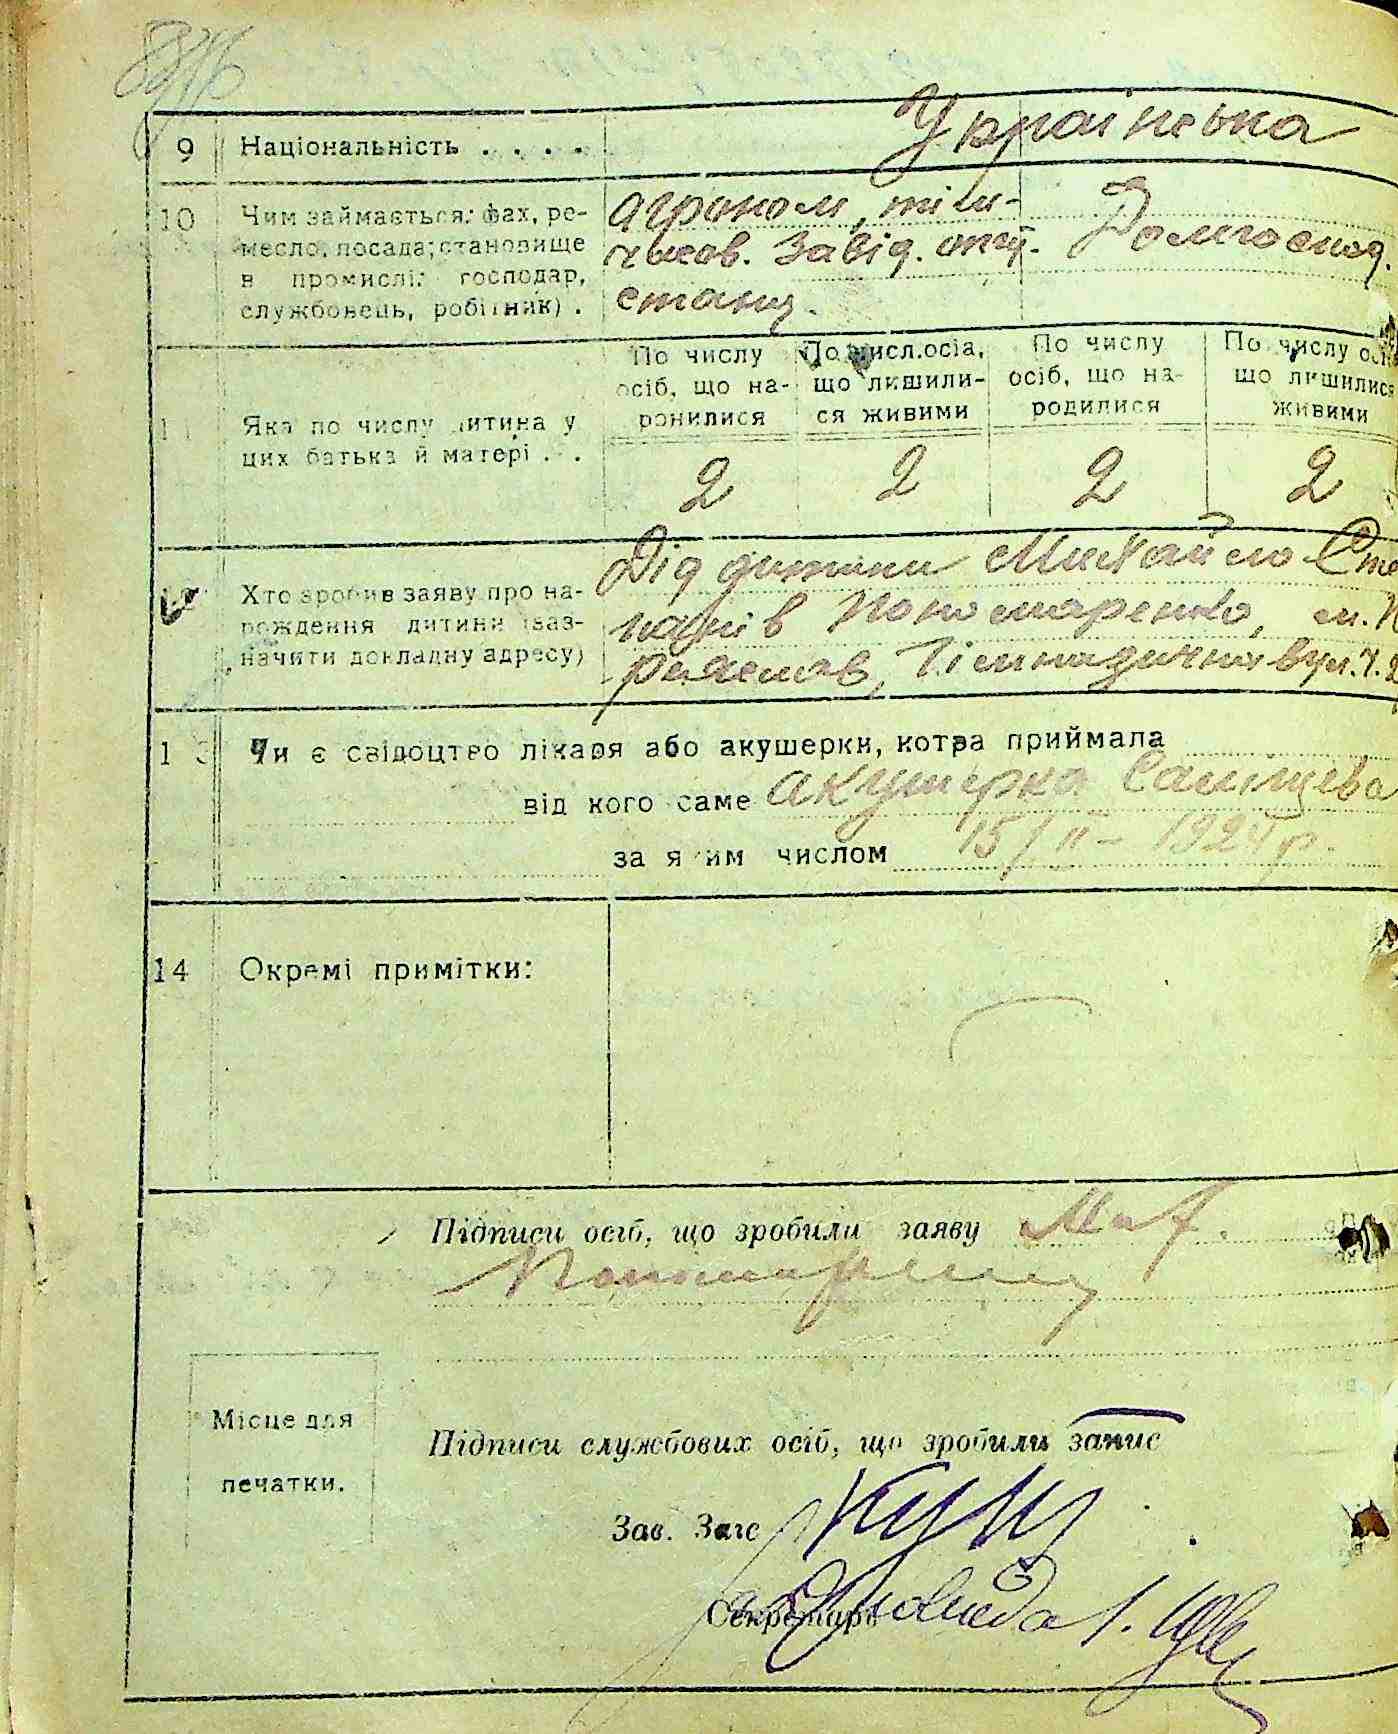 9 Національність . . . . Українська
10 Чим займається: фах, ре-
месло, посада; становище
в промислі: господар,
службовець, робітник) .
агроном, тим-
часов. Завід. Домгоспод.
станц.
По числу
осіб, що на-
ронилися
По числ. осіа,
що лишили-
ся живими
По числу
осіб, що на-
родилися
По числу
що лишилися
живими
11 Яка по числу дитина у
цих батька й матері . .
2 2 2 2
Хто зробив заяву про на-
рождення дитини (заз-
начити докладну адресу)
Дід дитини Михайло Сте
панів Пономаренко, м.
реяслав, Гімназична вул. ч. 2
13 Чи є свідоцтво лікаря або акушерки, котра приймала
від кого саме акушерка
за яким числом 15/II – 1924 р.
14 Окремі примітки:
Підписи осіб, що зробили заяву
Пономаренко
Місце для
печатки.
Підписи службових осіб, що зробили запис
Зав. Загс
Секретарь